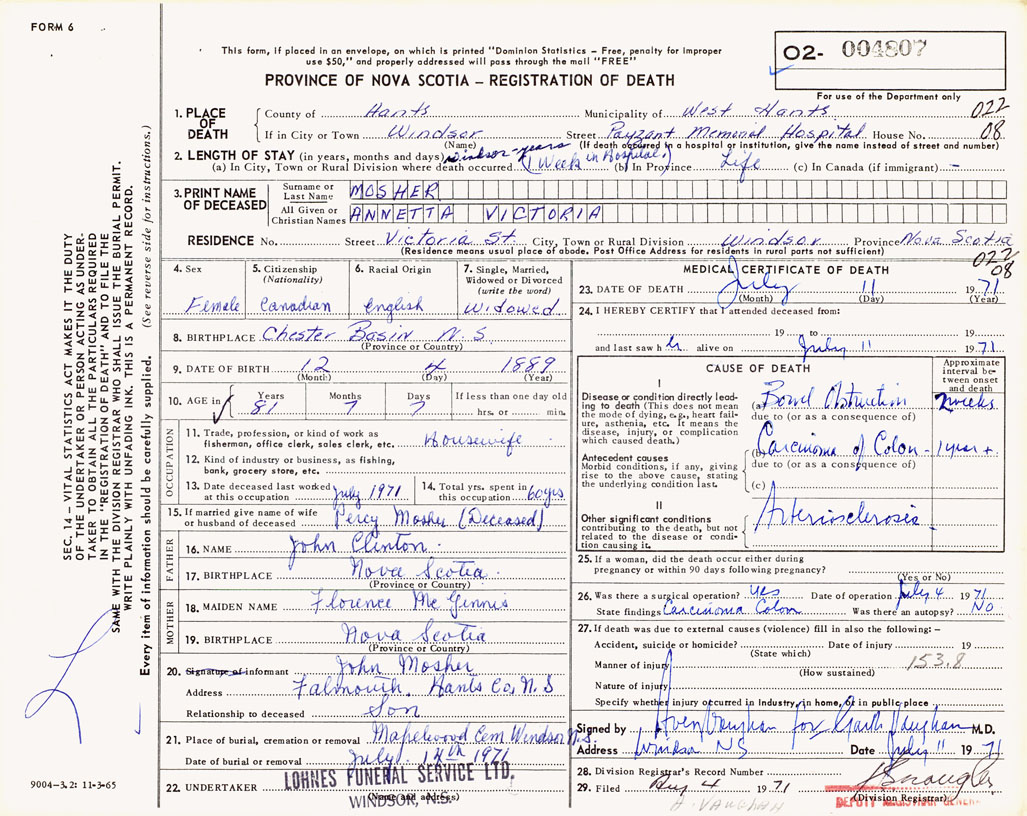 FORM 6
This form, if placed in an envelope, on which is printed "Dominion Statistics – Free, penalty for improper
use $50," and properly addressed will pass through the mail "FREE"
PROVINCE OF NOVA SCOTIA – REGISTRATION OF DEATH
02- 004807
For use of the Department only
SEC. 14 – VITAL STATISTICS ACT MAKES IT THE DUTY
OF THE UNDERTAKER OR PERSON ACTING AS UNDER-
TAKER TO OBTAIN ALL THE PARTICULARS REQUIRED
IN THE "REGISTRATION OF DEATH" AND TO FILE THE
SAME WITH THE DIVISION REGISTRAR WHO SHALL ISSUE THE BURIAL PERMIT.
WRITE PLAINLY WITH UNFADING INK. THIS IS A PERMANENT RECORD.
Every item of information should be carefully supplied. (See reverse side for instructions.)
1. PLACE OF DEATH
County of Hants Municipality of West Hants 022
If in City or Town Windsor Street Payzant Memorial Hospital House No. 08
(Name) (If death occurred in a hospital or institution, give the name instead of street and number)
2. LENGTH OF STAY (in years, months and days) Windsor - years
(a) In City, Town or Rural Division where death occurred (1 Week in Hospital) (b) In Province Life (c) In Canada (if immigrant) –
3. PRINT NAME OF DECEASED
Surname or Last Name MOSHER
All Given or Christian Names ANNETTA VICTORIA
RESIDENCE No. Street Victoria St. City, Town or Rural Division Windsor Province Nova Scotia
(Residence means usual place of abode. Post Office Address for residents in rural parts not sufficient)
022
08
4. Sex Female
5. Citizenship (Nationality) Canadian
6. Racial Origin English
7. Single, Married, Widowed or Divorced (write the word) Widowed
8. BIRTHPLACE Chester Basin N.S.
(Province or Country)
9. DATE OF BIRTH 12 4 1889
(Month) (Day) (Year)
10. AGE in Years 81 Months 7 Days 7 If less than one day old hrs. or min.
OCCUPATION
11. Trade, profession, or kind of work as fisherman, office clerk, sales clerk, etc. Housewife
12. Kind of industry or business, as fishing, bank, grocery store, etc.
13. Date deceased last worked at this occupation July 1971
14. Total yrs. spent in this occupation 60 yrs
15. If married give name of wife or husband of deceased Percy Mosher (Deceased)
FATHER
16. NAME John Clinton
17. BIRTHPLACE Nova Scotia
(Province or Country)
MOTHER
18. MAIDEN NAME Florence McGinnis
19. BIRTHPLACE Nova Scotia
(Province or Country)
20. Signature of informant John Mosher
Address Falmouth, Hants Co, N.S
Relationship to deceased Son
21. Place of burial, cremation or removal Maplewood Cem Windsor N.S.
Date of burial or removal July 1971
22. UNDERTAKER LOHNES FUNERAL SERVICE LTD.
(Name and address) WINDSOR, N.S.
9004–3.2: 11-3-65
MEDICAL CERTIFICATE OF DEATH
23. DATE OF DEATH July 11 1971
(Month) (Day) (Year)
24. I HEREBY CERTIFY that I attended deceased from:
19 to 19
and last saw h er alive on July 11 1971
CAUSE OF DEATH
Approximate interval between onset and death
I
Disease or condition directly leading to death (This does not mean the mode of dying, e.g., heart failure, asthenia, etc. It means the disease, injury, or complication which caused death.)
(a) Bowel Obstruction 2 weeks
due to (or as a consequence of)
Antecedent causes
Morbid conditions, if any, giving rise to the above cause, stating the underlying condition last.
(b) Carcinoma of Colon - 1 year +
due to (or as a consequence of)
(c)
II
Other significant conditions contributing to the death, but not related to the disease or condition causing it.
Arteriosclerosis
25. If a woman, did the death occur either during
pregnancy or within 90 days following pregnancy?
(Yes or No)
26. Was there a surgical operation? yes Date of operation July 4 1971
State findings Carcinoma Colon Was there an autopsy? NO
27. If death was due to external causes (violence) fill in also the following: –
Accident, suicide or homicide? Date of injury 19
(State which)
Manner of injury 153.8
(How sustained)
Nature of injury
Specify whether injury occurred in Industry, in home, or in public place
Signed by Vaughan for Garth Vaughan M.D.
Address Windsor NS Date July 11 1971
28. Division Registrar's Record Number
29. Filed Aug 4 1971
(Division Registrar)
DEPUTY REGISTRAR GENERAL
A. VAUGHAN